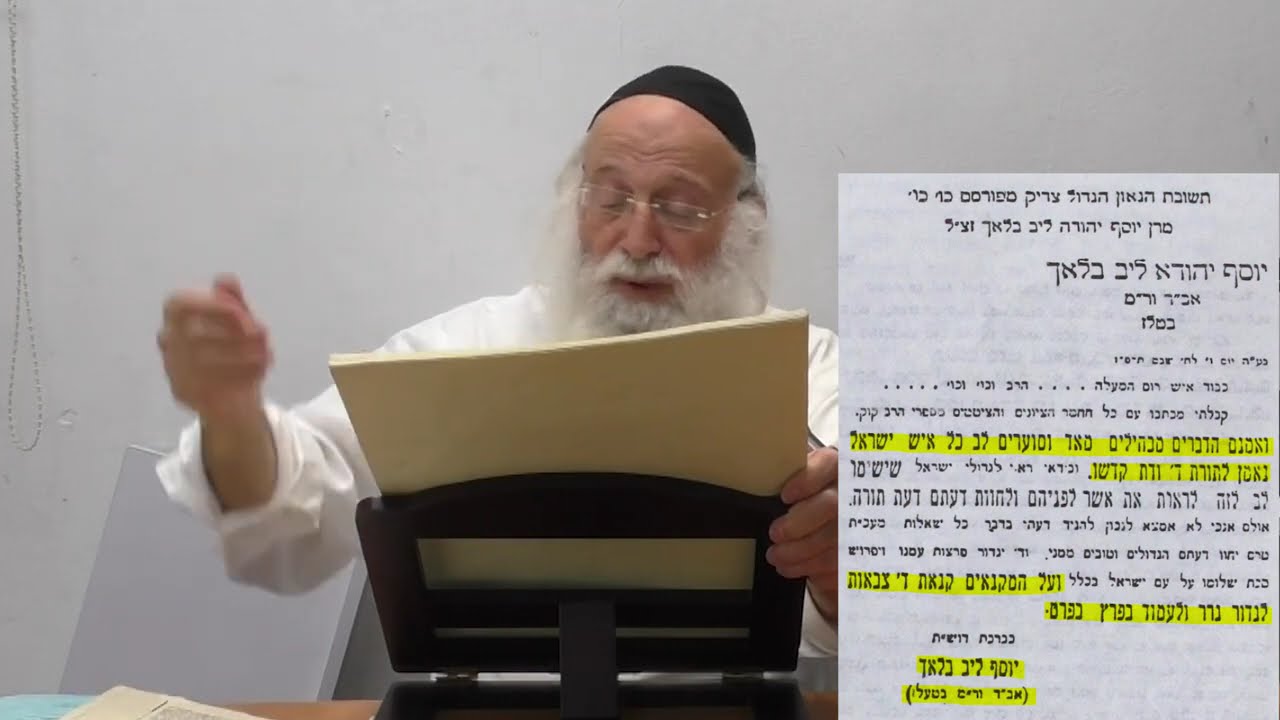 תשובת הגאון הגדול צדיק מפורסם כו׳ כו׳
מרן יוסף יהודה ליב בלאך זצ״ל
יוסף יהודא ליב בלאך
אב״ד ור״מ
בטלז
בע״ה יום ו׳ לח׳ שבט
כבוד איש רום המעלה . . . . הרב וכו׳ וכו׳ . . . . .
קבלתי מכתבו עם כל חמשר הציונים והציטטים מספרי הרב קוק.
ואמנם הדברים מבהילים מאד וסוערים לב כל איש ישראל
נאמן לתורת ד׳ ודת קדשו. ובודאי ראוי לגדולי ישראל שישימו
לב לזה לראות את אשר לפניהם ולחוות דעתם דעת תורה.
אולם אנכי לא אמצא לנכון להגיד דעתי בדבר כל שאלות מעכ״ת
טרם יחוו דעתם הגדולים וטובים ממני. וד׳ יגדור פרצות עמנו ויפרוש
סכת שלומו על עם ישראל בכלל ועל המקנאים קנאת ד׳ צבאות
לגדור גדר ולעמוד בפרץ בפרט.
בברכת דוש״ת
יוסף ליב בלאך
(אב״ד ור״מ בטעלז)